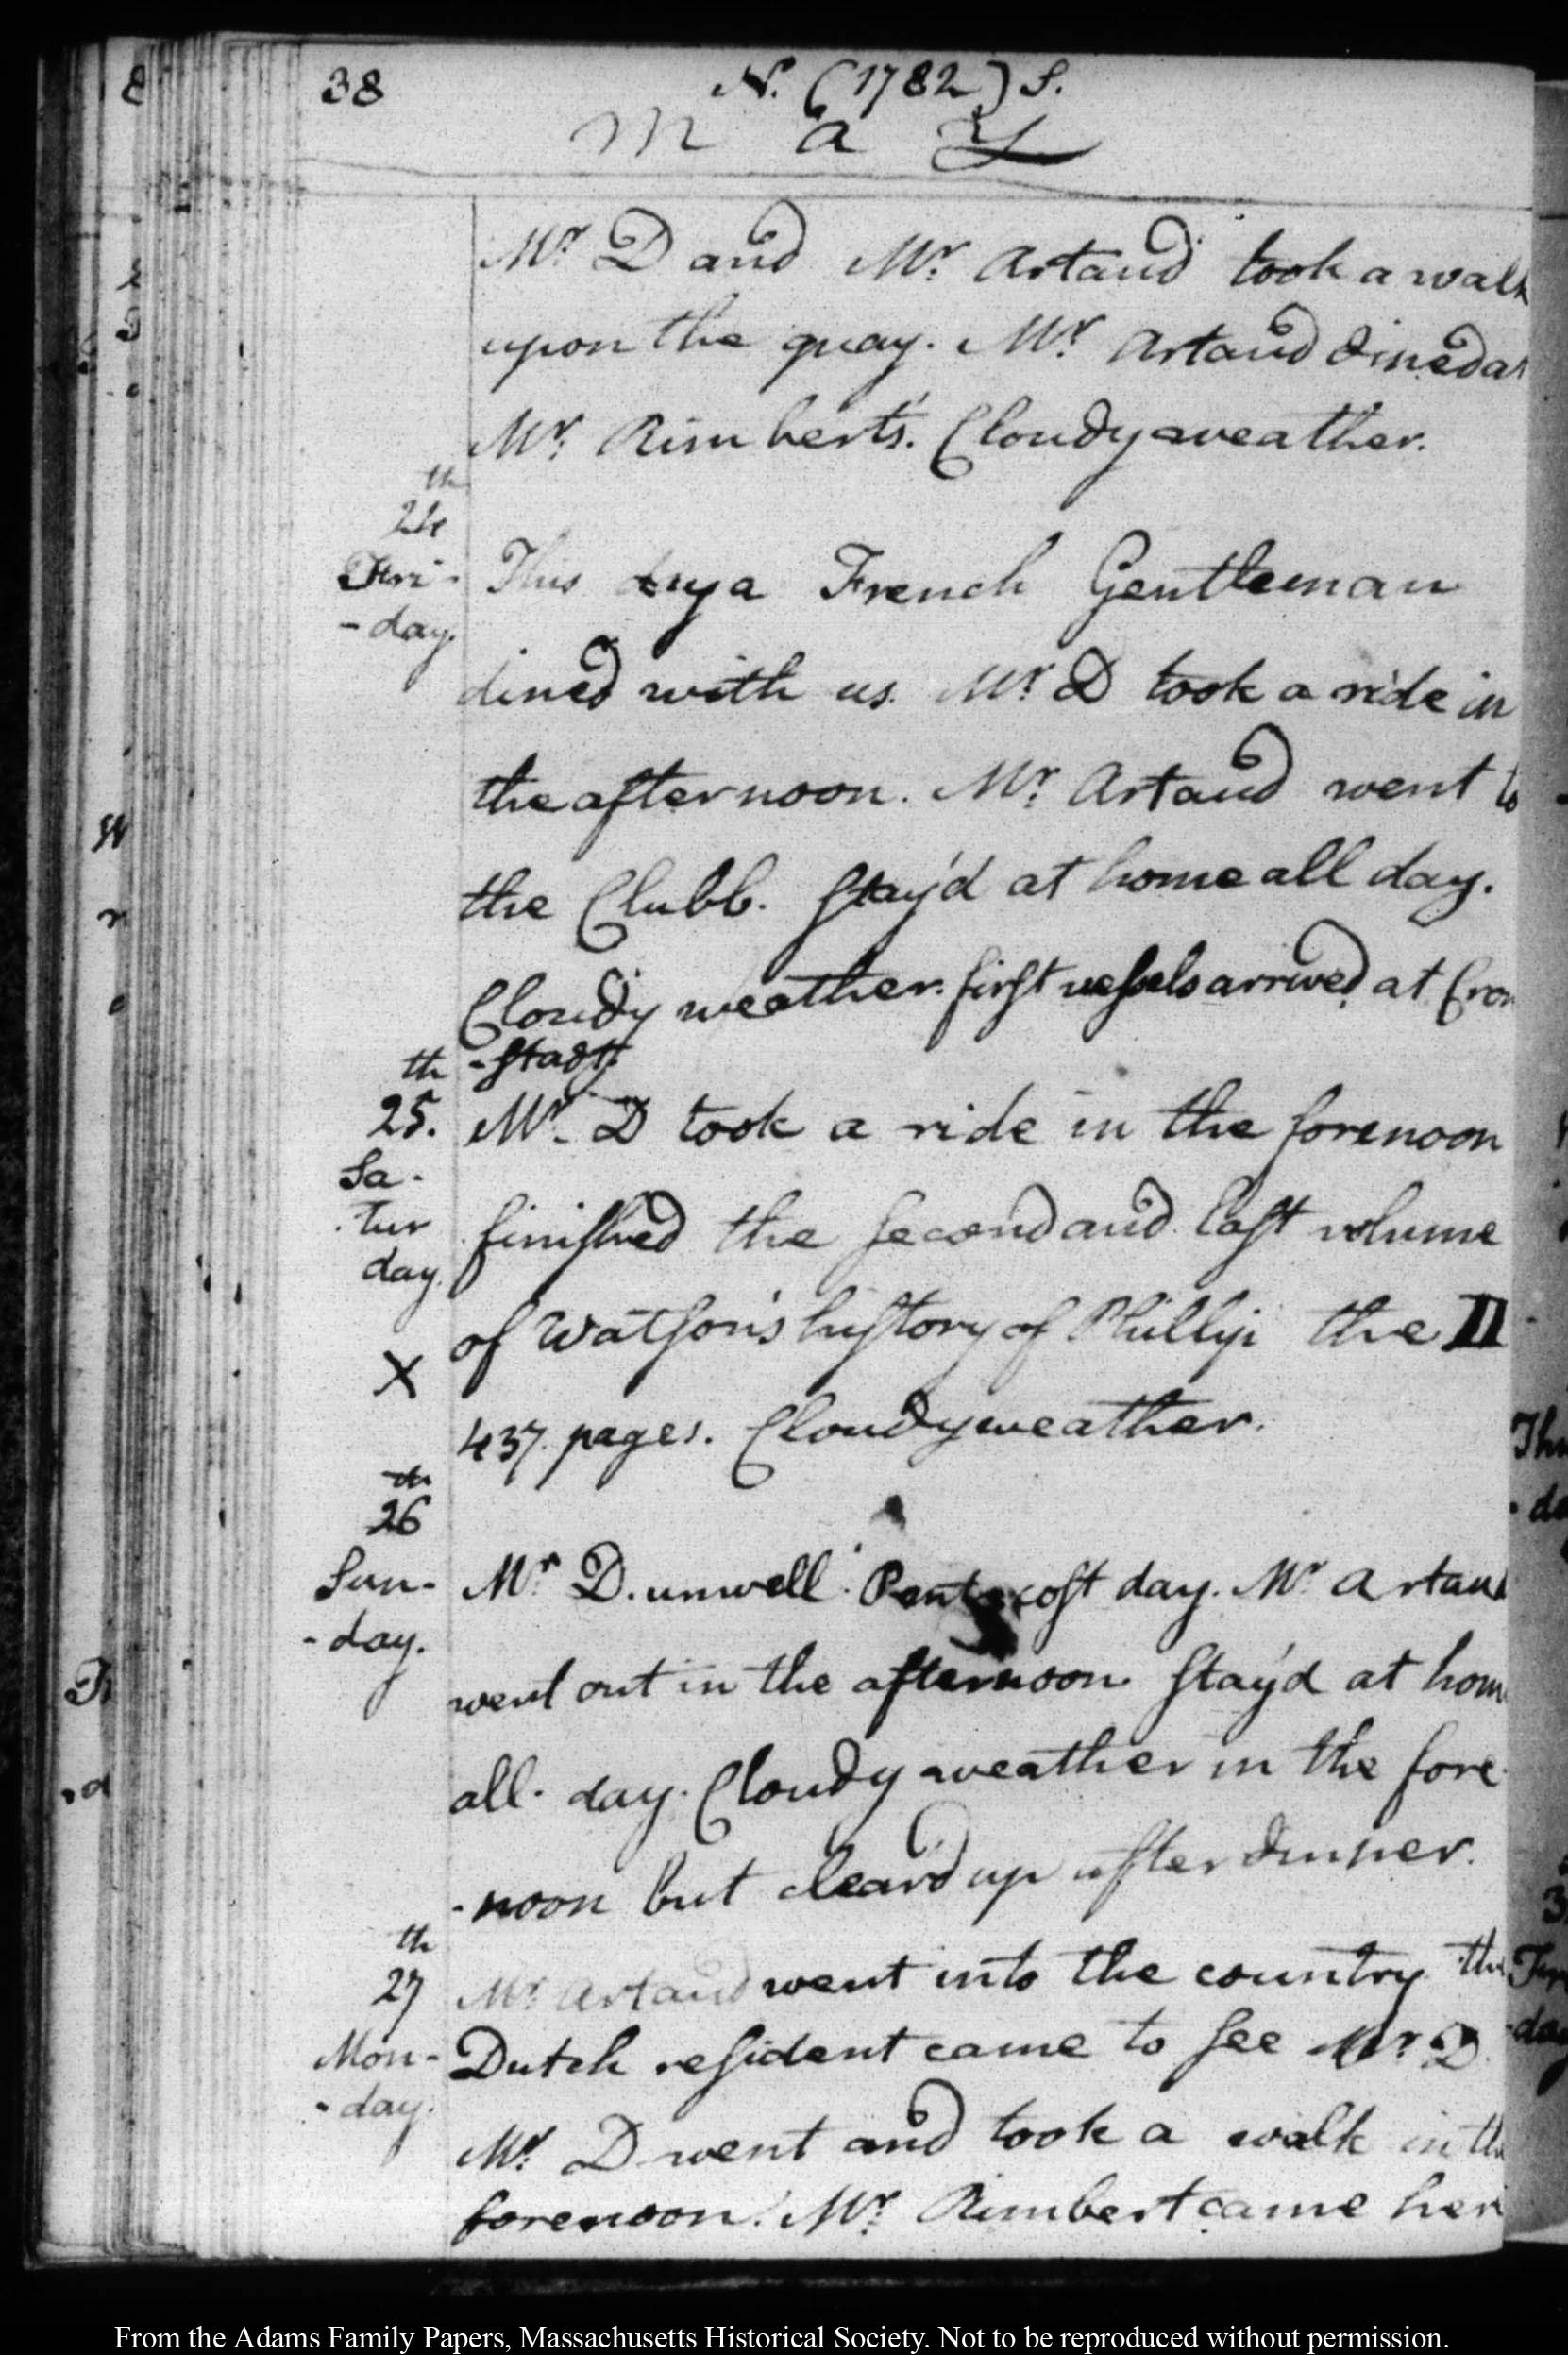 38
N. (1782) S.
May
Mr D and Mr. Artaud took a walk
upon the quay. Mr Artaud dined at
Mr. Rimbert's. Cloudy weather.
th
24
Fri-
-day.
This day a French Gentleman
dined with us. Mr D took a ride in
the afternoon. Mr. Artaud went to
the Clubb. Stay'd at home all day.
Cloudy weather. first vessels arrived at Cron
-stadt.
th
25.
Sa-
tur
day.
X
Mr. D took a ride in the forenoon
finished the second and last volume
of Watson's history of Phillip the II
437 pages. Cloudy weather.
th
26
Sun-
-day.
Mr D. unwell. Pentecost day. Mr Artaud
went out in the afternoon. Stay'd at home
all day. Cloudy weather in the fore-
-noon but clear'd up after dinner.
th
27
Mon-
-day.
Mr Artaud went into the country the
Dutch resident came to see Mr. D.
Mr. D went and took a walk in the
forenoon. Mr. Rimbert came here
From the Adams Family Papers, Massachusetts Historical Society. Not to be reproduced without permission.